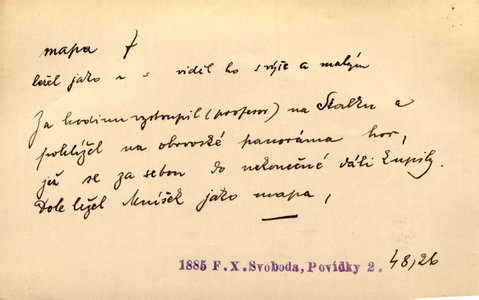 mapa f
ležel jako v s viděl ho s výše a malým
Za hodinu vystoupil (profesor) na Skalku a
pohlížel na obrovské panoráma hor,
jež se za sebou do nekonečné dáli kupily.
Dole ležel Mníšek jako mapa,
1885 F. X. Svoboda, Povídky 2. 48,26